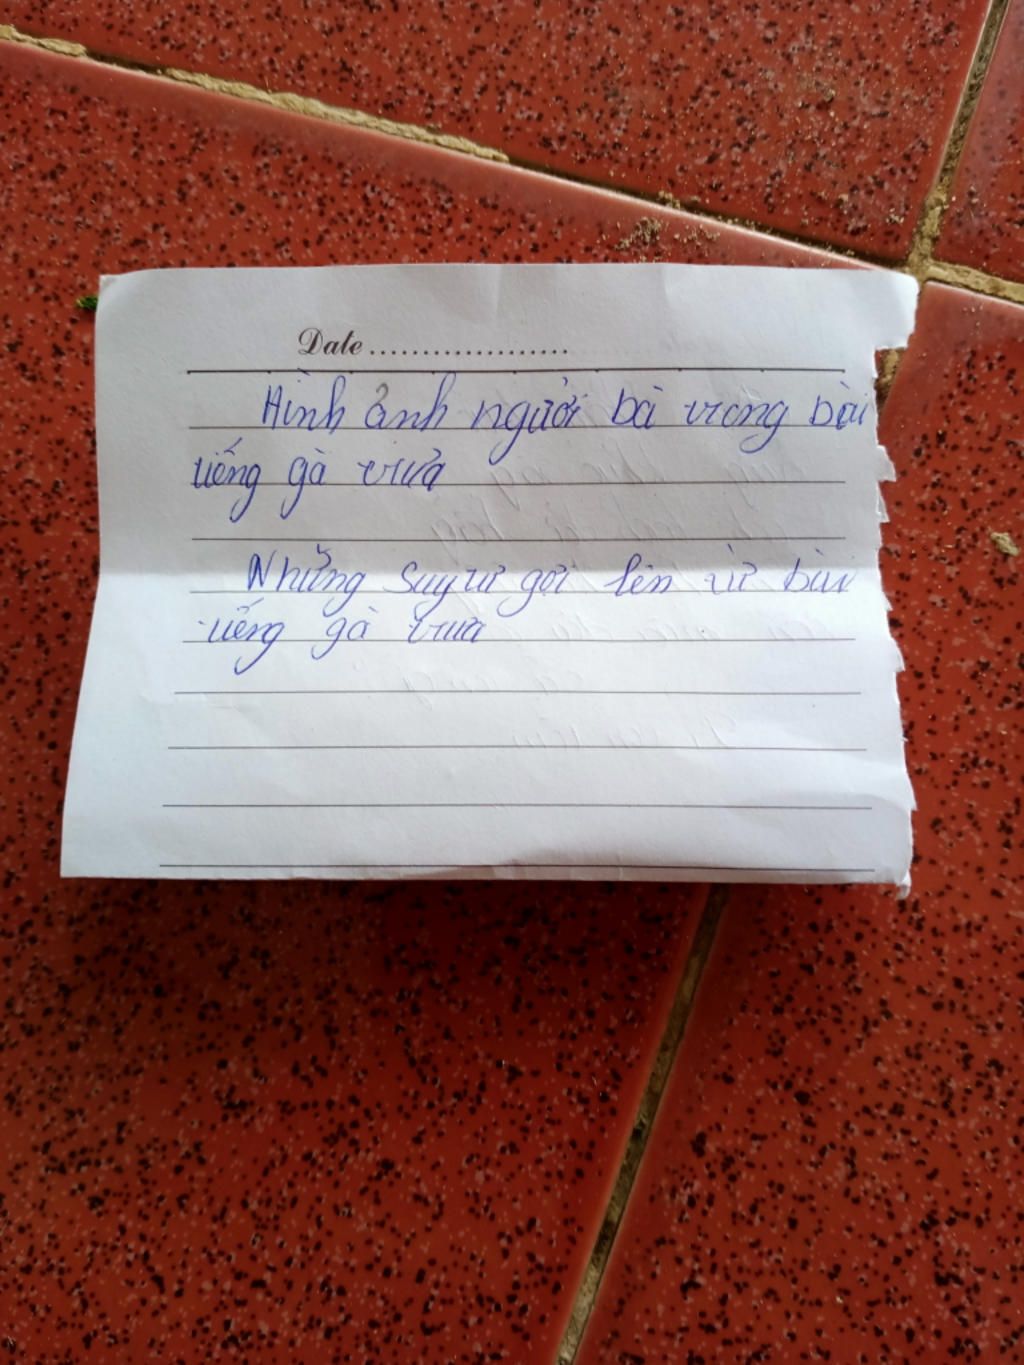 Date
Hình ảnh người bà trong bài
tiếng gà trưa
Những suy tư gợi lên từ bài
tiếng gà trưa